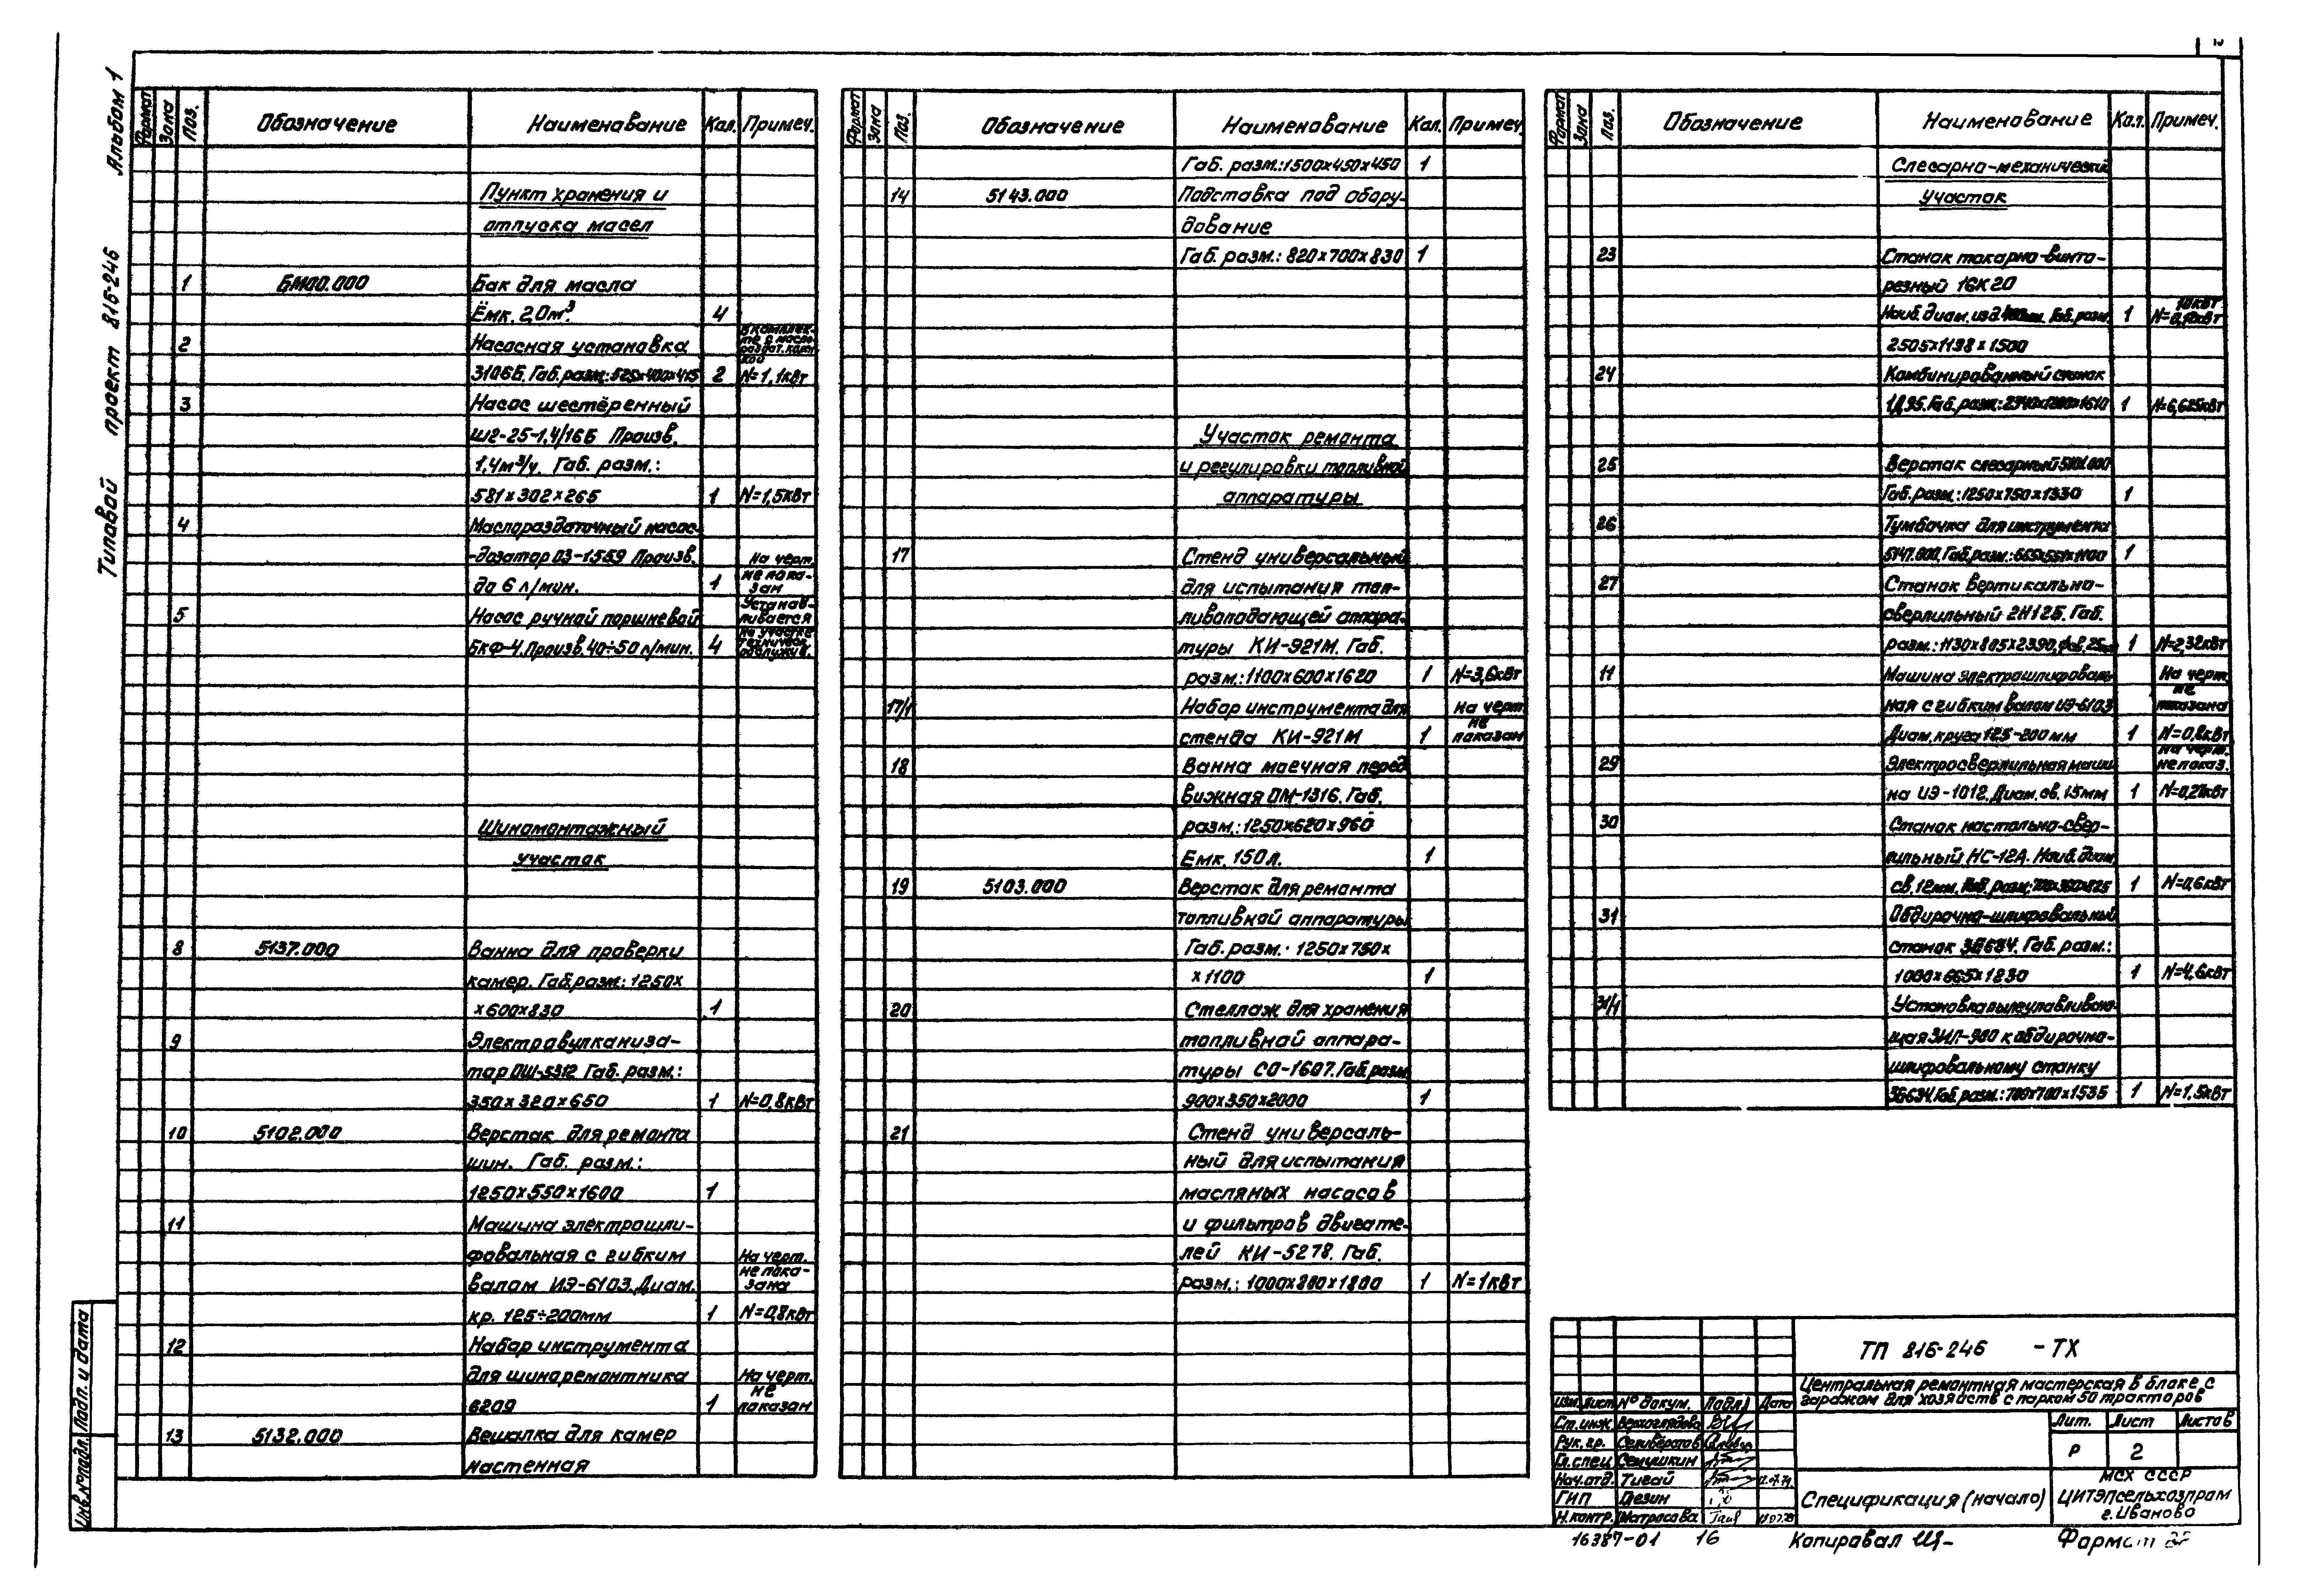 Альбом 1
Типовой проект 816-246
Инв.№подл. Подп. и дата
Формат Зона Поз. Обозначение Наименование Кол. Примеч.
Пункт хранения и
отпуска масел
1 БМ00.000 Бак для масла
Ёмк. 2,0м³. 4
2 Насосная установка
3106Б. Габ. разм.: 525х400х415 2 N=1,1кВт
3 Насос шестёренный
Ш2-25-1,4/16Б Произв.
1,4м³/ч. Габ. разм.:
581х302х265 1 N=1,5кВт
4 Маслораздаточный насос-
-дозатор 03-1559 Произв. На черт.
до 6 л/мин. 1 не пока-
зан
5 Насос ручной поршневой Устанав-
ливается
БКФ-4. Произв. 40÷50 л/мин. 4 на участке
Шиномонтажный
участок
8 5137.000 Ванна для проверки
камер. Габ.разм.: 1250х
х600х830 1
9 Электровулканиза-
тор ОШ-5312 Габ. разм.:
350х320х650 1 N=0,8кВт
10 5102.000 Верстак для ремонта
шин. Габ. разм.:
1250х550х1600 1
11 Машина электрошли-
фовальная с гибким На черт.
не пока-
валом ИЭ-6103. Диам. зана
кр. 125÷200мм 1 N=0,8кВт
12 Набор инструмента
для шиноремонтника На черт.
не
6209 1 показан
13 5132.000 Вешалка для камер
настенная
Формат Зона Поз. Обозначение Наименование Кол. Примеч.
Габ. разм.: 1500х450х450 1
14 5143.000 Подставка под обору-
дование
Габ. разм.: 820х700х830 1
Участок ремонта
и регулировки топливной
аппаратуры
17 Стенд универсальный
для испытания топ-
ливоподающей аппара-
туры КИ-921М. Габ.
разм.: 1100х600х1620 1 N=3,6кВт
17/1 Набор инструмента для на черт.
не
стенда КИ-921М 1 показан
18 Ванна моечная перед
вижная ОМ-1316. Габ.
разм.: 1250х620х960
Емк. 150л. 1
19 5103.000 Верстак для ремонта
топливной аппаратуры
Габ. разм.: 1250х750х
х1100 1
20 Стеллаж для хранения
топливной аппара-
туры СО-1607. Габ. разм.
900х350х2000 1
21 Стенд универсаль-
ный для испытания
масляных насосов
и фильтров двигате-
лей КИ-5278. Габ.
разм.: 1000х800х1800 1 N=1кВт
Формат Зона Поз. Обозначение Наименование Кол. Примеч.
Слесарно-механический
участок
23 Станок токарно-винто-
резный 16К20
10кВт
Наиб. диам. изд. Габ. разм. 1
2505х1198х1500
24 Комбинированный станок
1Д95. Габ. разм.: 1 N=6,625кВт
25 Верстак слесарный 5101.000
Габ. разм.: 1250х750х1330 1
26 Тумбочка для инструмента
5147.000. Габ. разм.: 665х551х1100 1
27 Станок вертикально-
сверлильный 2Н125. Габ.
разм.: 1130х805х2390, 1 N=2,32кВт
11 Машина электрошлифоваль На черт.
не
ная с гибким валом ИЭ-6103 показана
Диам. круга 125-200мм 1 N=0,8кВт
на черт.
29 Электросверлильная маши не показ.
на ИЭ-1012. Диам. св. 15мм 1 N=0,27кВт
30 Станок настольно-свер-
лильный НС-12А. Наиб. диам.
св. 12мм. Габ. разм.: 1 N=0,6кВт
31 Обдирочно-шлифовальный
станок 3Б634. Габ. разм.:
1000х665х1230 1 N=4,6кВт
31/1 Установка пылеулавливаю-
щая ЗИЛ-900 к обдирочно-
шлифовальному станку
3Б634. Габ. разм.: 700х700х1535 1 N=1,5кВт
ТП 816-246 -ТХ
Центральная ремонтная мастерская в блоке с
гаражом для хозяйств с парком 50 тракторов
Изм. Лист № докум. Подп. Дата
Ст.инж. Верхоглядова
Рук. гр. Селивёрстов
Гл.спец Семушкин
Нач.отд. Тигай
ГИП Грезин
Н.контр. Матросова
Лит. Лист Листов
Р 2
Спецификация (начало)
МСХ СССР
ЦИТЭПсельхозпром
г. Иваново
16387-01 16 Копировал Формат